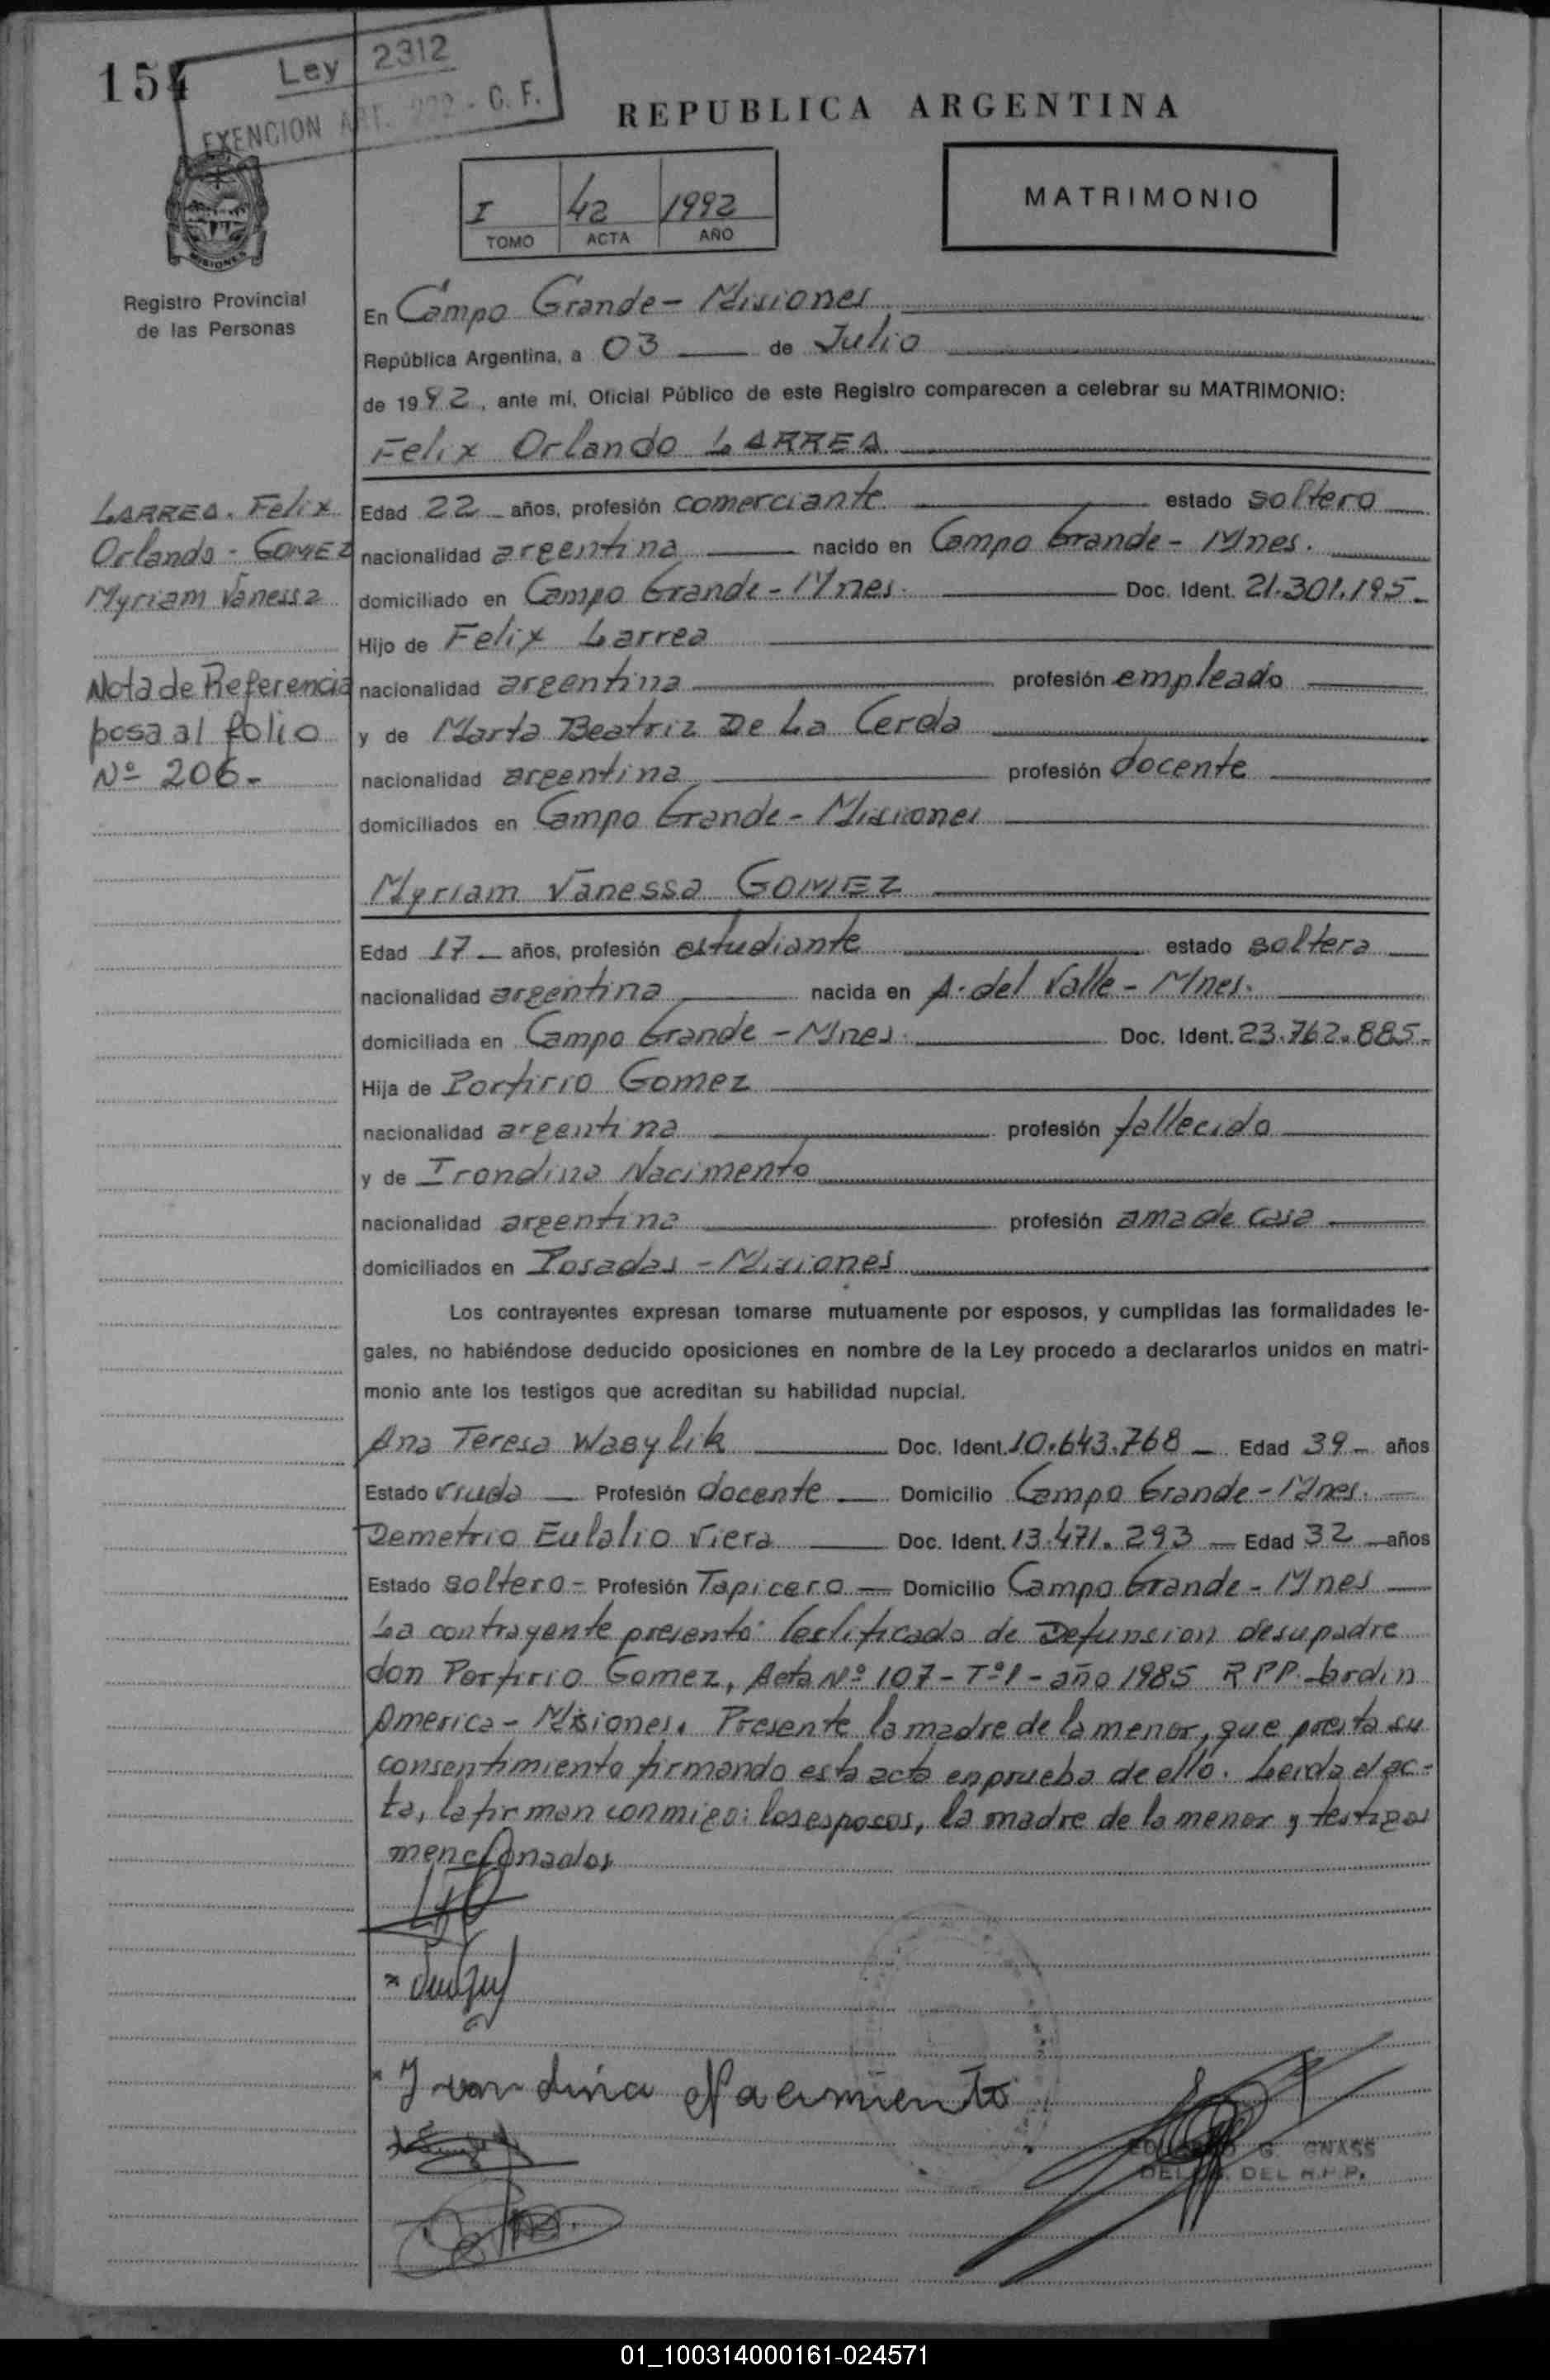 154
Ley 2312
EXENCION ART. 292 - C. F.
REPUBLICA ARGENTINA
I 42 1992
TOMO ACTA AÑO
MATRIMONIO
MISIONES
Registro Provincial
de las Personas
En Campo Grande - Misiones
República Argentina, a 03 de Julio
de 1992, ante mi, Oficial Público de este Registro comparecen a celebrar su MATRIMONIO:
Felix Orlando LARREA
LARREA. Felix
Orlando - GOMEZ
Myriam Vanessa
Nota de Referencia
pasa al folio
Nº 206.-
Edad 22 años, profesión comerciante estado soltero
nacionalidad argentina nacido en Campo Grande - Mnes.
domiciliado en Campo Grande - Mnes. Doc. Ident. 21.301.195.-
Hijo de Felix Larrea
nacionalidad argentina profesión empleado
y de Marta Beatriz De La Cerda
nacionalidad argentina profesión docente
domiciliados en Campo Grande - Misiones
Myriam Vanessa GOMEZ
Edad 17 años, profesión estudiante estado soltera
nacionalidad argentina nacida en A. del Valle - Mnes.
domiciliada en Campo Grande - Mnes. Doc. Ident. 23.762.885.-
Hija de Porfirio Gomez
nacionalidad argentina profesión fallecido
y de Irondina Nacimento
nacionalidad argentina profesión ama de casa
domiciliados en Posadas - Misiones
Los contrayentes expresan tomarse mutuamente por esposos, y cumplidas las formalidades le-
gales, no habiéndose deducido oposiciones en nombre de la Ley procedo a declararlos unidos en matri-
monio ante los testigos que acreditan su habilidad nupcial.
Ana Teresa Wasylik Doc. Ident. 10.643.768 Edad 39 años
Estado viuda Profesión docente Domicilio Campo Grande - Mnes.
Demetrio Eulalio Viera Doc. Ident. 13.471.293 Edad 32 años
Estado soltero - Profesión Tapicero Domicilio Campo Grande - Mnes
La contrayente presentó: Certificado de Defunsion de su padre
don Porfirio Gomez, Acta Nº 107 - Tº 1 - año 1985 R P P. Jardin
America - Misiones. Presente la madre de la menor, que presta su
consentimiento firmando esta acta en prueba de ello. Leida el ac-
ta, la firman conmigo: los esposos, la madre de la menor y testigos
mencionados
Irondina Nacimiento
G. GNASS
DEL R.P.P.
01_100314000161-024571